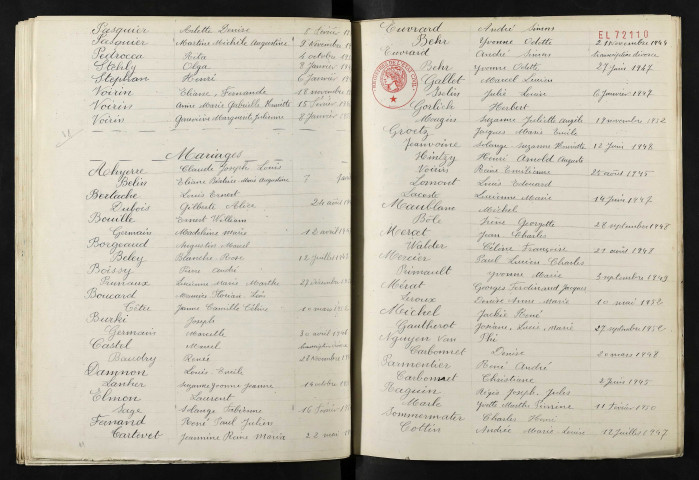 Pasquier Colette Denise 5 Février
Pasquier Martine Michèle Augustine 9 Novembre
Pedrocca Rita 4 octobre
Stehly Olga 2 Janvier
Stephan Henri 6 janvier
Voirin Eliane, Fernande 18 novembre
Voirin Anne Marie Gabrielle Henriette 15 Février
Voirin Geneviève Marguerite Julienne 2 Janvier
Mariages
Claude Joseph Louis
Belin Eliane Béatrice Marie Augustine 7
Bertache Louis Ernest
Dubois Gilberte Alice 24 août
Bouille Ernest William
Germain Madeleine Marie 12 avril
Borgeaud Augustin Marcel
Beley Blanche Rose 12 Juillet
Boissy Pierre André
Pruniaux Lucienne Marie Marthe 27 décembre
Boucard Maurice Florian Léon
Côte Jeanne Camille Céline 10 mars
Burki Joseph
Germain Marcelle 30 avril
Castel Marcel
Baudry Renée 28 Novembre
Damnon Louis Emile
Lanher Suzanne Yvonne Jeanne 14 octobre
Elmon Laurent
Sage Solange Fabienne 16 Février
Fernand René Paul Julien
Cartevet Jeannine Reine Maria 22 mai
Euvrard André Simon
EL72110
Behr Yvonne Odette 21 Novembre 1944
Euvrard André Simon transcription divorce
Behr Yvonne Odette 27 Juin 1947
Gallot Marcel Lucien
Belin Julie Lucie 6 Janvier 1947
Gorlich Herbert
Mougin Suzanne Juliette Angèle 19 novembre 1952
Groetz Jacques Marie Emile
Jeanvoine Solange Suzanne Henriette 12 Juin 1948
Hintzy Henri Arnold Auguste
Voirin Reine Emilienne 25 août 1945
Lomont Louis Edouard
Lacoste Lucienne Marie 14 Juin 1947
Maublanc Michel
Bôle Irène Georgette 28 septembre 1948
Merat Jean Charles
Walder Céline Françoise 21 août 1948
Mercier Paul Lucien Charles
Primault Yvonne Marie 3 septembre 1949
Mérat Georges Ferdinand Jacques
Leroux Denise Anne Marie 10 mai 1952
Michel Jackie René
Gautherot Josiane Lucie Marie 27 septembre 1952
Nguyen Van Thi
Carbonnet Denise 20 mars 1948
Parmentier René André
Carbonnet Christiane 2 Juin 1945
Raguin Régis Joseph Jules
Marle Yvette Marthe Pierrine 11 Février 1950
Sommermater Charles Henri
Cottin Andrée Marie Louise 12 Juillet 1947